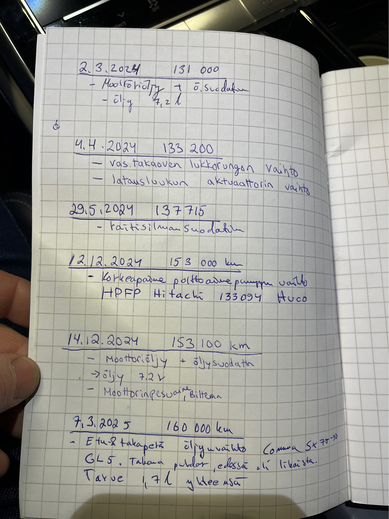 2.3.2024 131 000
- Moottoriöljy + ö.suodatin
- öljy 7,2 l
4.4.2024 133 200
- vas. takaoven lukkorungon vaihto
- latausluukun aktuaattorin vaihto
29.5.2024 137715
- raitisilmansuodatin
12.12.2024 153 000 km
- Korkeapaine polttoainepumppu vaihto
HPFP Hitachi 133094 Hüco
14.12.2024 153 100 km
- Moottoriöljy + öljysuodatin
→ öljy 7.2 l
- Moottorinpesuaine, Biltema
7.3.2025 160 000 km
- Etu & takaperä öljyn vaihto Comma SX 75-90
GL5. Takana puhdas, edessä oli likaista.
Tarve 1,7 l yhteensä